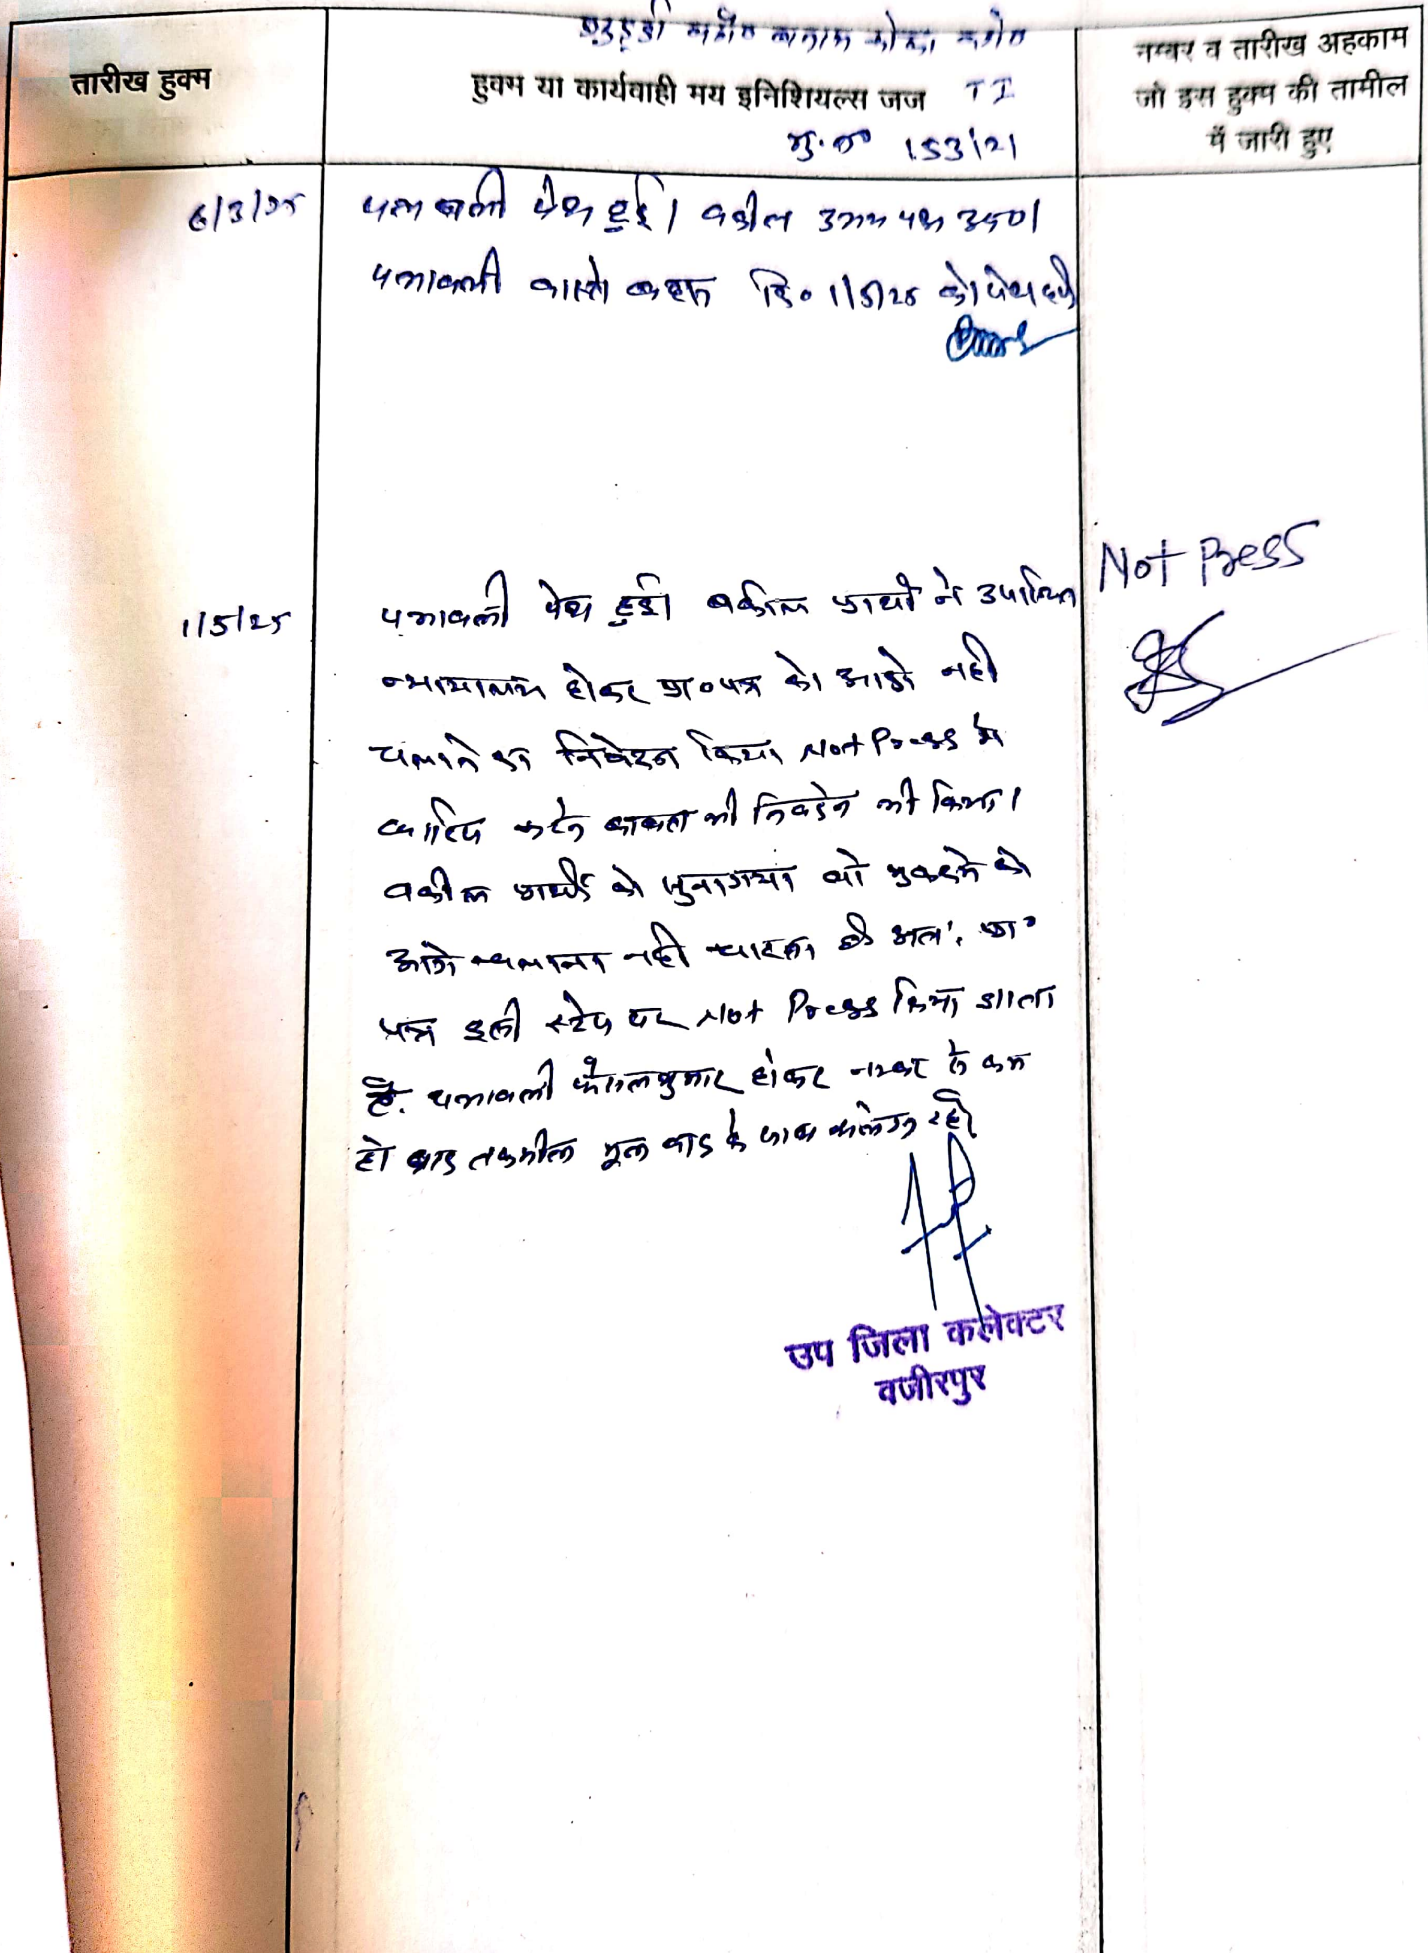 बनाम
तारीख हुक्म
हुक्म या कार्यवाही मय इनिशियल्स जज TI
मु.न० 153/21
नम्बर व तारीख अहकाम
जो इस हुक्म की तामील
में जारी हुए
6/3/25 पत्रावली पेश हुई। वकील उभय पक्ष उप०।
पत्रावली वास्ते बहस दि० 1/5/25 को पेश हो
Not Press
1/5/25 पत्रावली पेश हुई। वकील प्रार्थी ने उपस्थित
न्यायालय होकर प्रा०पत्र को आगे नही
चलाने का निवेदन किया Not Press मे
खारिज करने बाबत भी निवेदन भी किया।
वकील प्रार्थी को सुना गया वो मुकदमे को
आगे चलाना नही चाहता है अतः प्रा०
पत्र इसी स्टेज पर Not Press किया जाता
है. पत्रावली फैसलशुमार होकर नम्बर से कम
हो बाद तकमील मूल वाद के साथ संलग्न रहे
उप जिला कलेक्टर
वजीरपुर